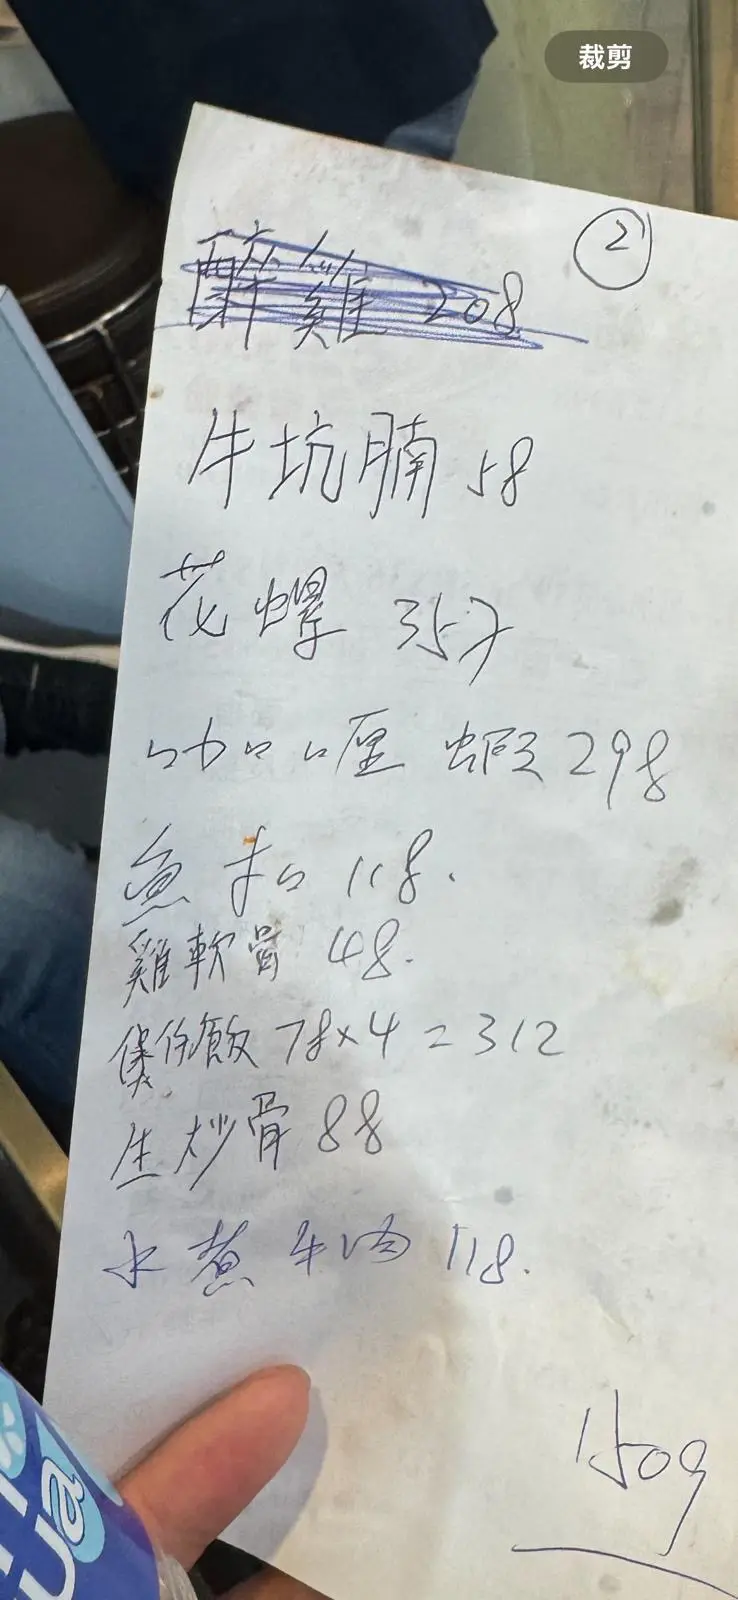 裁剪
2
醉雞 208
牛坑腩 58
花螺 357
咖喱 蝦 298
魚扣 118.
雞軟骨 48.
煲仔飯 78x4=312
生炒骨 88
水煮牛肉 118.
1509